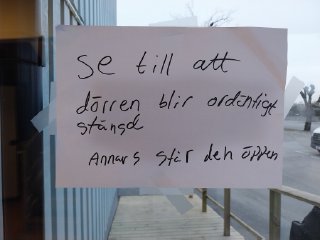 se till att
dörren blir ordentligt
stängd
Annars står den öppen